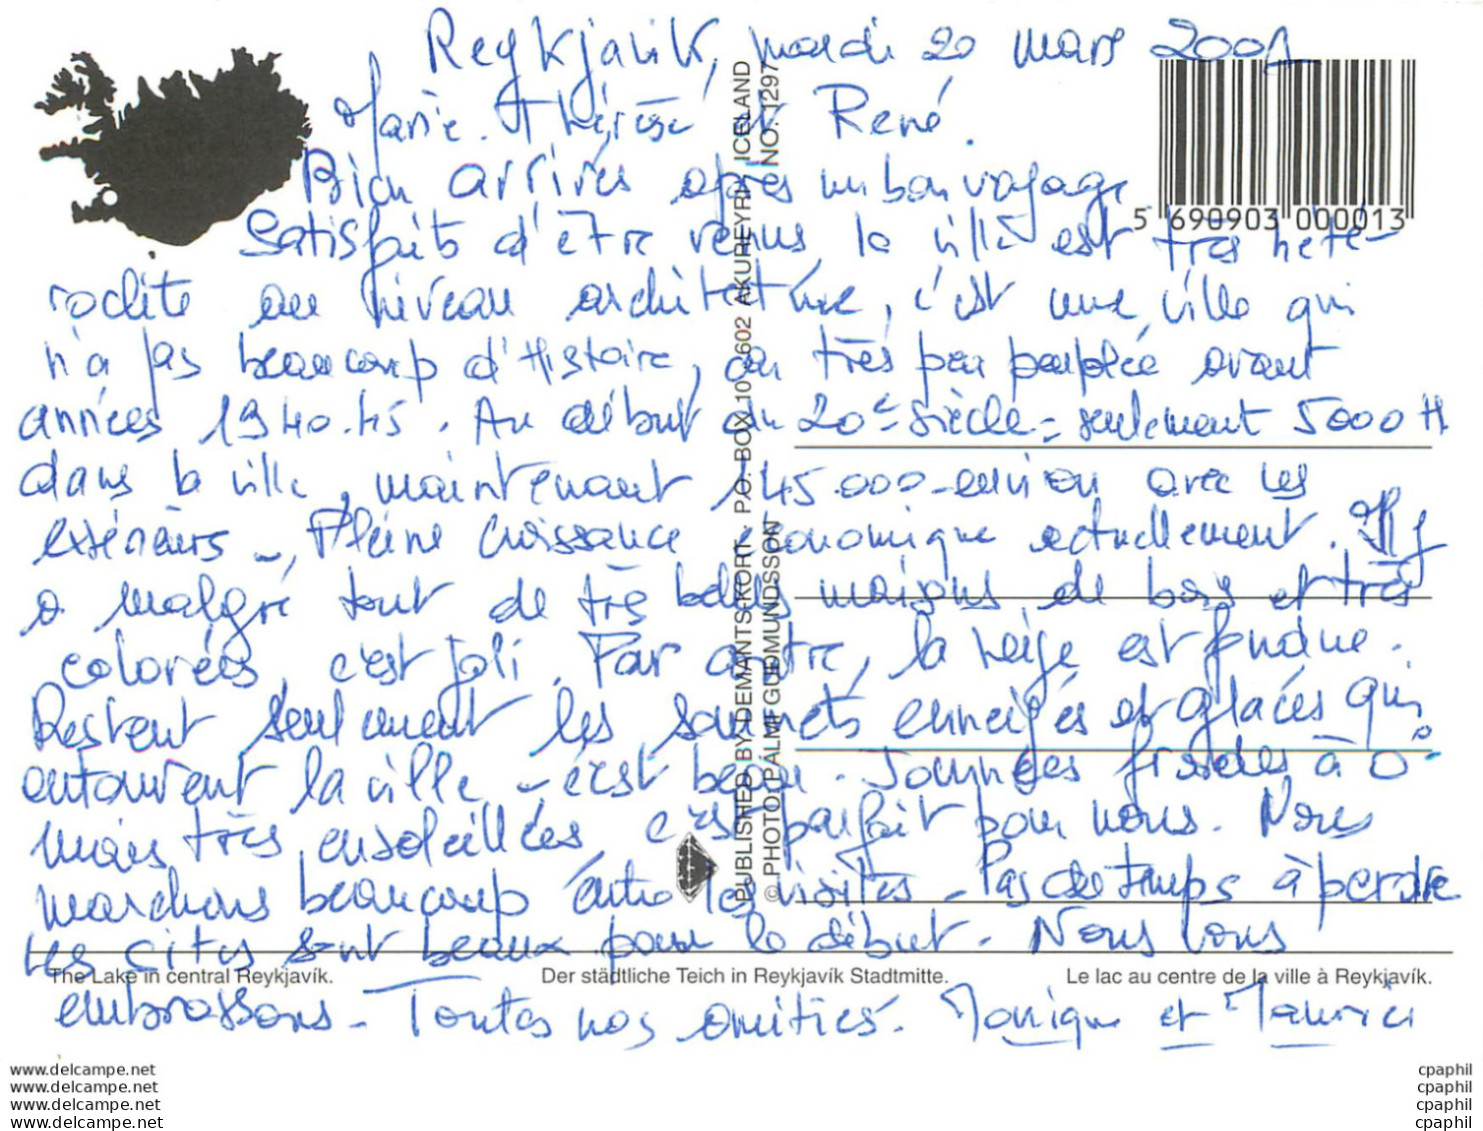 Reykjavik, mardi 20 mars 2001
Marie-Thérèse et René.
Bien arrivés après un bon voyage
Satisfaits d'être venus, la ville est très hété-
roclite au niveau architecture, c'est une ville qui
n'a pas beaucoup d'Histoire, car très peu peuplée avant
années 1940.45. Au début du 20e siècle = seulement 5000 H
dans la ville, maintenant 145.000 environ avec les
extérieurs -, Pleine croissance économique actuellement. Il y
a malgré tout de très belles maisons de bois et très
colorées, c'est joli. Par contre, la neige est fondue.
Restent seulement les sommets enneigés et glacés qui
entourent la ville - c'est beau. Journées froides à 0°
mais très ensoleillées, c'est parfait pour nous. Nous
marchons beaucoup entre les visites - Pas de temps à perdre
Les sites sont beaux pour le début. Nous vous
embrassons - Toutes nos amitiés. Monique et Maurice
5 690903 000013
PUBLISHED BY DEMANTS-KORT. P.O. BOX 10 - 602 AKUREYRI - ICELAND
© PHOTO PÁLMI GUÐMUNDSSON NO. 1297
The Lake in central Reykjavík. Der städtliche Teich in Reykjavík Stadtmitte. Le lac au centre de la ville à Reykjavík.
www.delcampe.net cpaphil
www.delcampe.net cpaphil
www.delcampe.net cpaphil
www.delcampe.net cpaphil